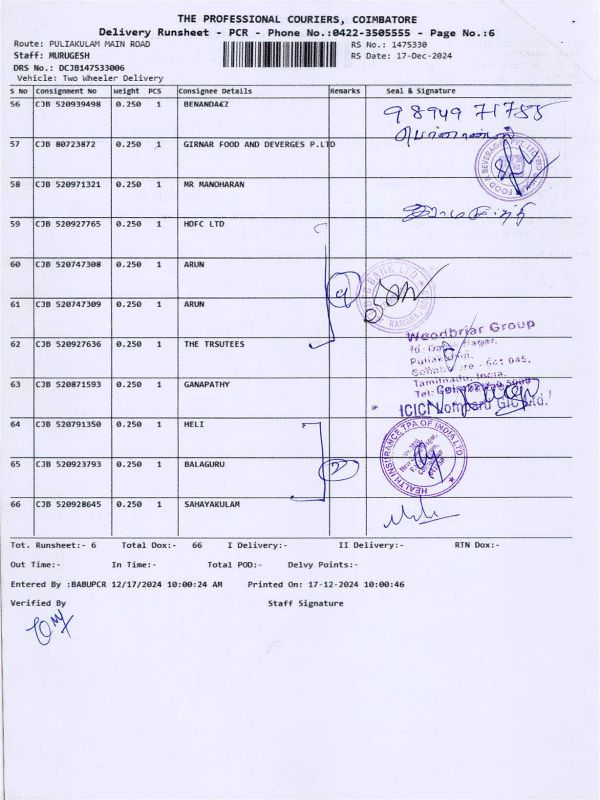 THE PROFESSIONAL COURIERS, COIMBATORE
Delivery Runsheet - PCR - Phone No.:0422-3505555 - Page No.:6
Route: PULIAKULAM MAIN ROAD RS No.: 1475330
Staff: MURUGESH RS Date: 17-Dec-2024
DRS No.: DCJB147533006
Vehicle: Two Wheeler Delivery
S No Consignment No Weight PCS Consignee Details Remarks Seal & Signature
56 CJB 520939498 0.250 1 BENANDA€Z 98949 71755
57 CJB 80723872 0.250 1 GIRNAR FOOD AND DEVERGES P.LTD
58 CJB 520971321 0.250 1 MR MANOHARAN
59 CJB 520927765 0.250 1 HDFC LTD
60 CJB 520747308 0.250 1 ARUN
BANK LTD
61 CJB 520747309 0.250 1 ARUN
62 CJB 520927636 0.250 1 THE TRSUTEES
Woodbriar Group
Tamilnadu, India.
63 CJB 520871593 0.250 1 GANAPATHY
ICICI Lombard GIC Ltd.
64 CJB 520791350 0.250 1 HELI
HEALTH INSURANCE TPA OF INDIA LTD
65 CJB 520923793 0.250 1 BALAGURU
66 CJB 520928645 0.250 1 SAHAYAKULAM
Tot. Runsheet:- 6 Total Dox:- 66 I Delivery:- II Delivery:- RTN Dox:-
Out Time:- In Time:- Total POD:- Delvy Points:-
Entered By :BABUPCR 12/17/2024 10:00:24 AM Printed On: 17-12-2024 10:00:46
Verified By Staff Signature